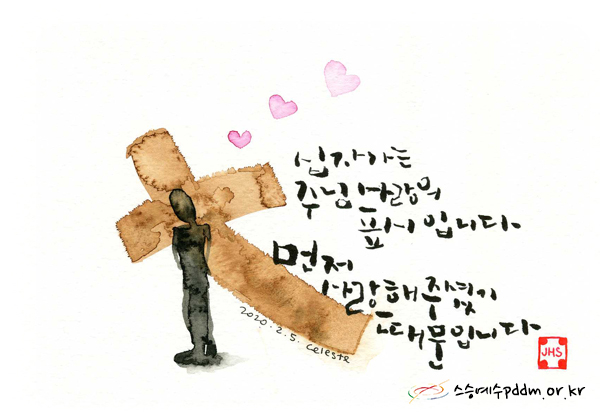 십자가는
주님 사랑의
표시입니다
먼저
사랑해 주셨기
때문입니다
2020. 2. 5. celeste
JHS
스승예수pddm.or.kr